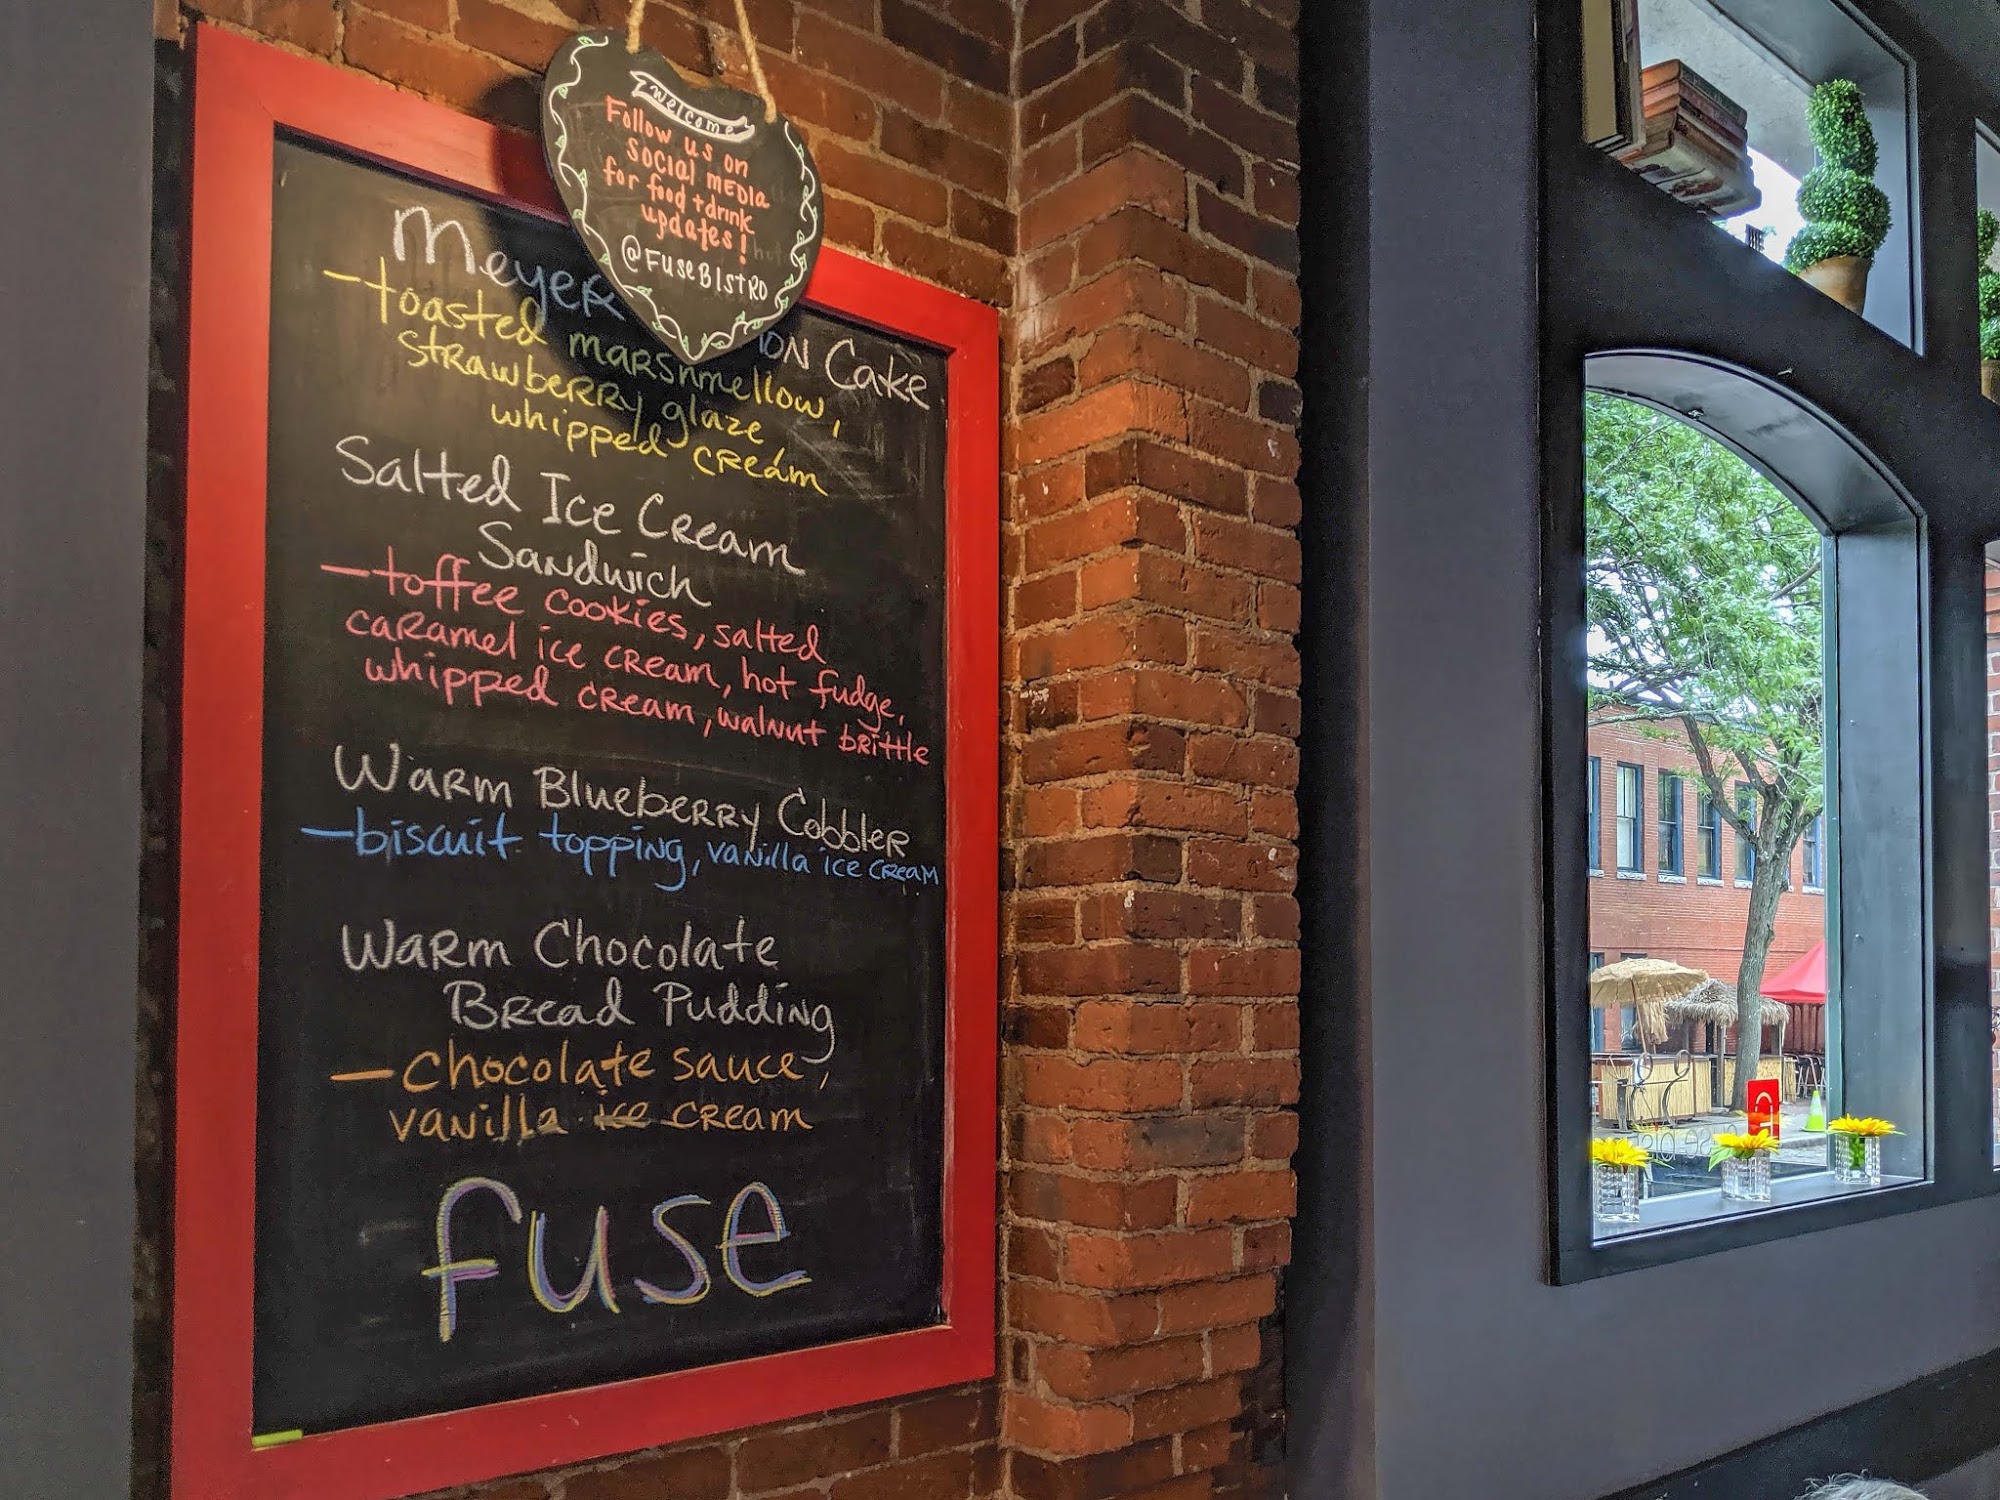 welcome
Follow us on
social media
for food + drink
updates!
@FuseBistro
Meyer
on Cake
-toasted marshmellow,
strawberry glaze
whipped cream
Salted Ice Cream
Sandwich
-toffee cookies, salted
caramel ice cream, hot fudge,
whipped cream, walnut brittle
Warm Blueberry Cobbler
-biscuit topping, vanilla ice cream
Warm Chocolate
Bread Pudding
-chocolate sauce,
vanilla ice cream
fuse